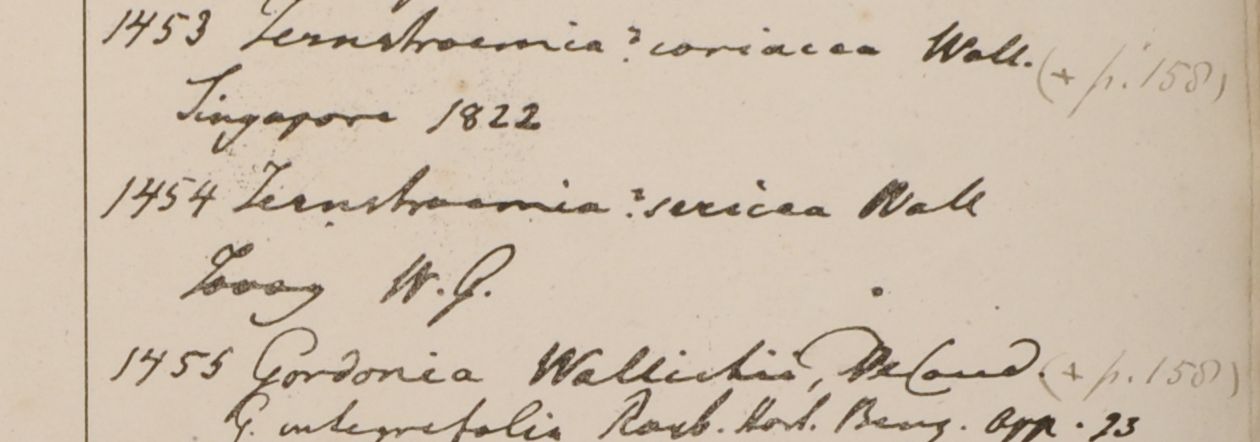 1453 Ternstroemia? coriacea Wall. (+ p. 158)
Singapore 1822
1454 Ternstroemia? sericea Wall
Tavoy W. G.
1455 Gordonia Wallichii, DeCand (+ p. 158)
G. integrifolia Roxb. Hort. Beng. app. 93